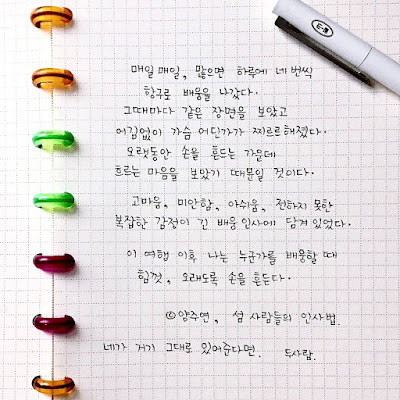 매일매일, 많으면 하루에 네 번씩
항구로 배웅을 나갔다.
그때마다 같은 장면을 보았고
어김없이 가슴 어딘가가 찌르르해졌다.
오랫동안 손을 흔드는 가운데
흐르는 마음을 보았기 때문일 것이다.
고마움, 미안함, 아쉬움, 전하지 못한
복잡한 감정이 긴 배웅 인사에 담겨 있었다.
이 여행 이후 나는 누군가를 배웅할 때
힘껏, 오래도록 손을 흔든다.
©양주연, 섬 사람들의 인사법.
네가 거기 그대로 있어준다면. 두사람.